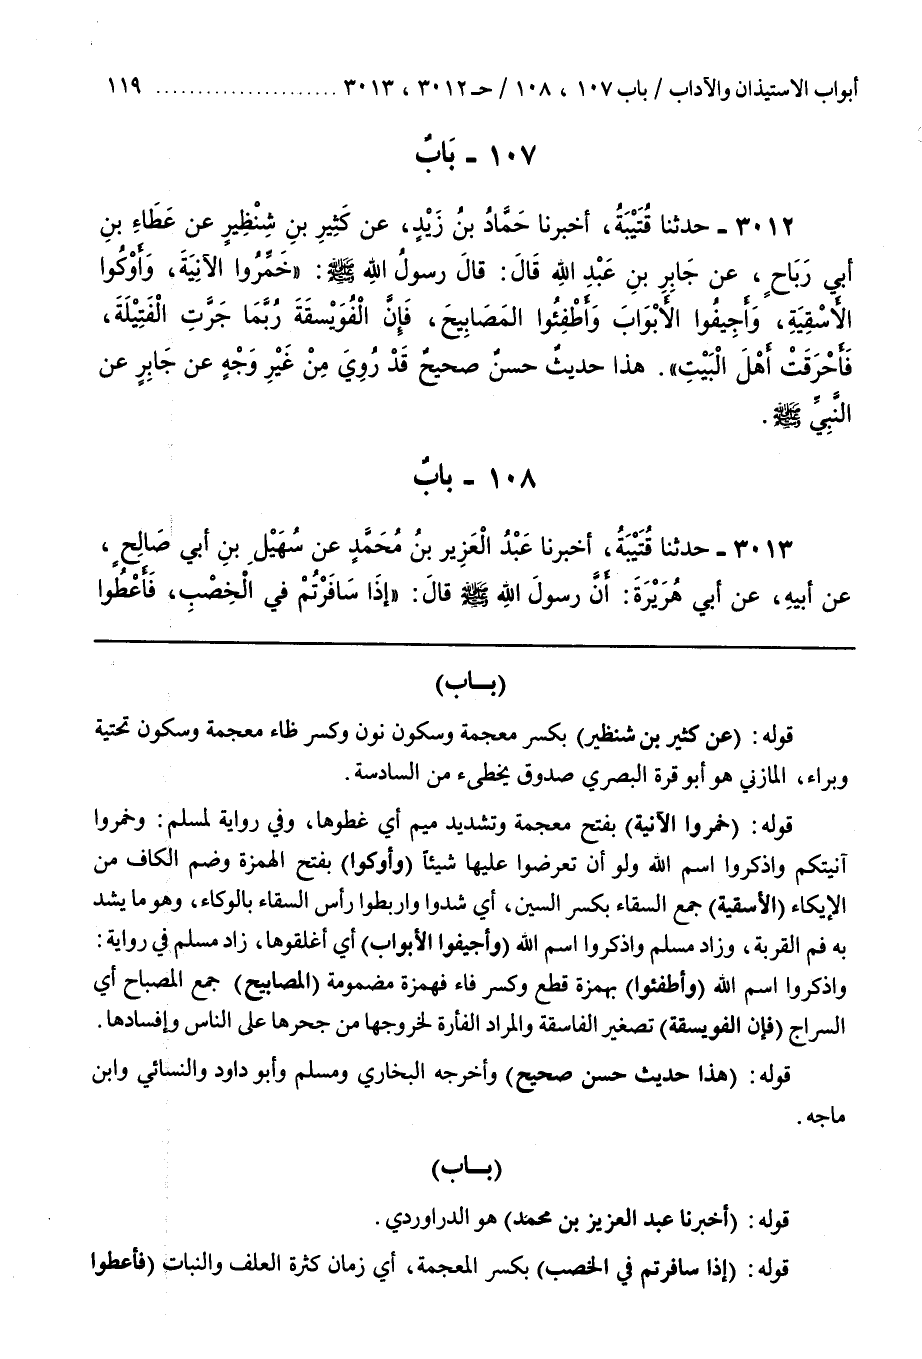 أبواب الاستيذان والآداب / باب ١٠٧ ، ١٠٨ / حـ ٣٠١٢ ، ٣٠١٣ ...................... ١١٩
١٠٧ - بَابٌ
٣٠١٢ - حدثنا قُتَيْبَةُ، أخبرنا حَمَّادُ بنُ زَيْدٍ، عن كَثِيرِ بنِ شِنْظِيرٍ عن عَطَاءِ بنِ
أبي رَبَاحٍ، عن جَابِرِ بنِ عَبْدِ اللهِ قَالَ: قالَ رسولُ اللهِ ﷺ: «خَمِّرُوا الآنِيَةَ، وَأَوْكُوا
الأَسْقِيَةِ، وَأَجِيفُوا الأَبْوَابَ وَأَطْفِئُوا المَصَابِيحَ، فَإِنَّ الْفُوَيْسِقَةَ رُبَّمَا جَرَّتِ الْفَتِيْلَةَ،
فَأَحْرَقَتْ أَهْلَ الْبَيْتِ». هذا حديثٌ حسنٌ صحيحٌ قَدْ رُوِيَ مِنْ غَيْرِ وَجْهٍ عن جَابِرٍ عن
النَّبِيِّ ﷺ.
١٠٨ - بابٌ
٣٠١٣ - حدثنا قُتَيْبَةُ، أخبرنا عَبْدُ الْعَزِيرِ بنُ مُحَمَّدٍ عن سُهَيْلِ بنِ أبي صَالِحٍ،
عن أبيهِ، عن أبي هُرَيْرَةَ: أَنَّ رسولَ اللهِ ﷺ قالَ: «إذَا سَافَرْتُمْ في الْخِصْبِ، فَأَعْطُوا
(بـاب)
قوله: (عن كثير بن شنظير) بكسر معجمة وسكون نون وكسر ظاء معجمة وسكون تحتية
وبراء، المازني هو أبو قرة البصري صدوق يخطىء من السادسة.
قوله: (خمروا الآنية) بفتح معجمة وتشديد ميم أي غطوها، وفي رواية لمسلم: وخمروا
آنيتكم واذكروا اسم الله ولو أن تعرضوا عليها شيئاً (وأوكوا) بفتح الهمزة وضم الكاف من
الإيكاء (الأسقية) جمع السقاء بكسر السين، أي شدوا واربطوا رأس السقاء بالوكاء، وهو ما يشد
به فم القربة، وزاد مسلم واذكروا اسم الله (وأجيفوا الأبواب) أي أغلقوها، زاد مسلم في رواية:
واذكروا اسم الله (وأطفئوا) بهمزة قطع وكسر فاء فهمزة مضمومة (المصابيح) جمع المصباح أي
السراج (فإن الفويسقة) تصغير الفاسقة والمراد الفأرة لخروجها من جحرها على الناس وإفسادها.
قوله: (هذا حديث حسن صحيح) وأخرجه البخاري ومسلم وأبو داود والنسائي وابن
ماجه.
(بـاب)
قوله: (أخبرنا عبد العزيز بن محمد) هو الدراوردي.
قوله: (إذا سافرتم في الخصب) بكسر المعجمة، أي زمان كثرة العلف والنبات (فأعطوا